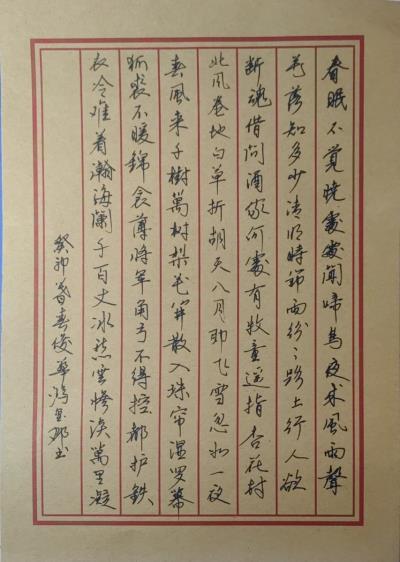 春眠不覚晓處處闻啼鸟夜来风雨聲
花落知多少清明時節雨纷々路上行人欲
断魂借问酒家何處有牧童遥指杏花村
北风卷地白草折胡天八月即飞雪忽如一夜
春風来千樹萬树梨花开散入珠帘湿罗幕
狐裘不暖錦衾薄将军角弓不得控都护鉄
衣冷难着瀚海闌干百丈冰愁雲惨淡萬里凝
癸卯暮春俊華书